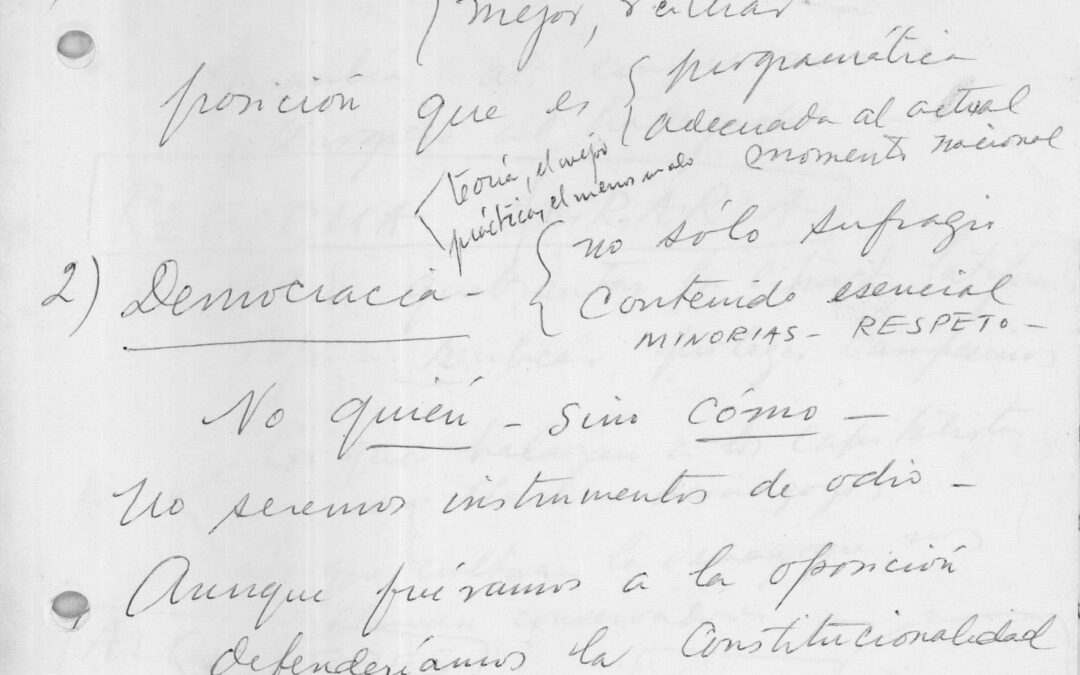 mejor,
posición que es { programática
adecuada al actual
momento nacional
teoría, el mejor
práctica, el menos malo
2) Democracia - { no sólo sufragio
Contenido esencial
MINORIAS - RESPETO -
No quién - sino cómo -
No seremos instrumentos de odio -
Aunque fuéramos a la oposición
defenderíamos la Constitucionalidad